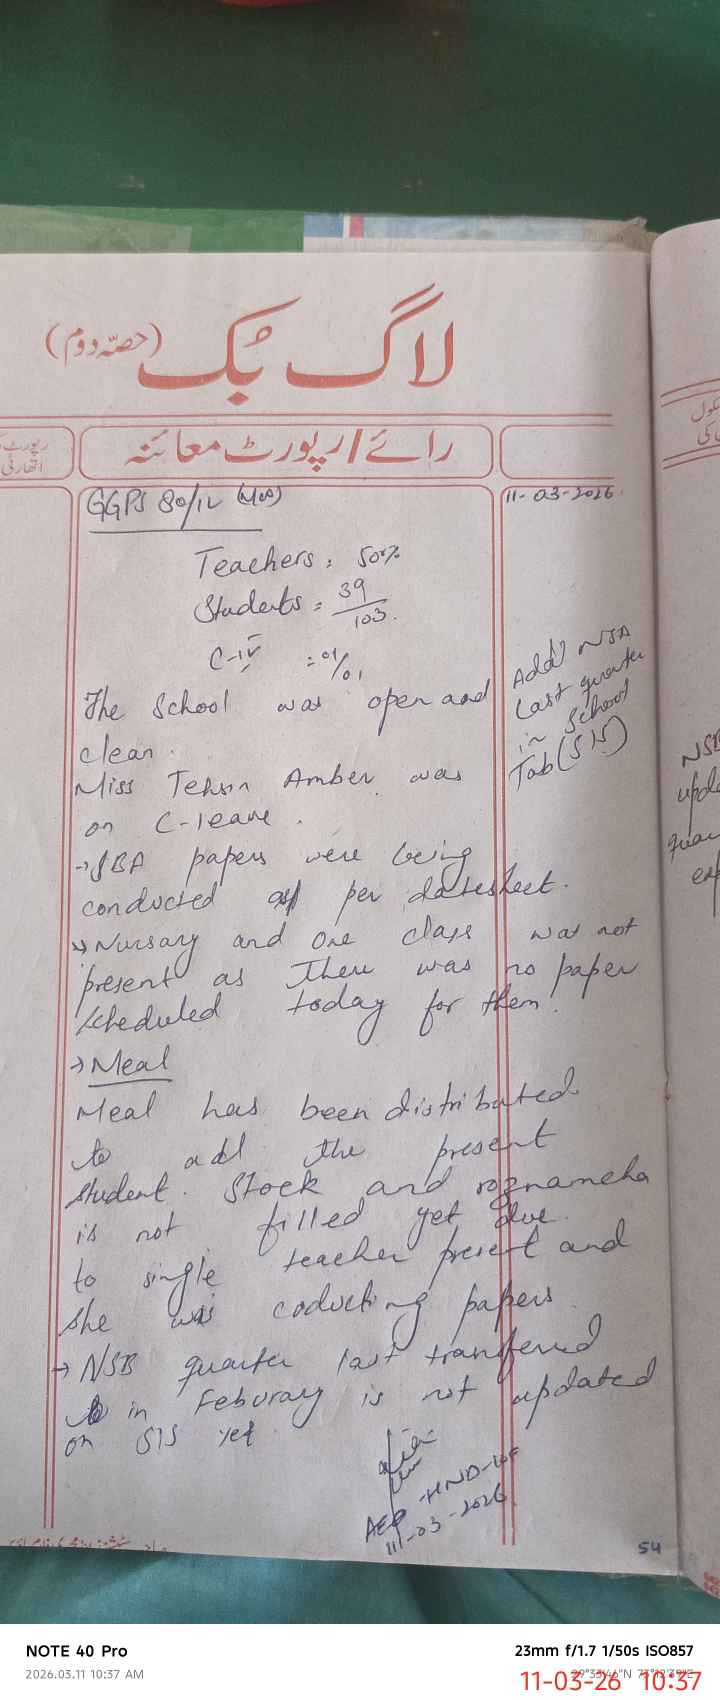 لاگ بُک (حصّہ دوم)
رائے/رپورٹ معائنہ
GGPS 80/12
11-03-2026
Teachers: 50%
Students = 39/103
C-IV = 01/01
The School was open and
clean.
Miss Tehsin Amber was
on C-leave.
→ SBA papers were being
conducted as per datesheet.
→ Nursary and One class was not
present as there was no paper
scheduled today for them.
→ Meal
Meal has been distributed
to all the present
student. Stock and roznameha
is not filled yet due
to single teacher present and
she was coducting papers
→ NSB quarter last transferred
in Feburary is not updated
on SIS yet
Add NSB
Last quarter
in School
Tab (SIS)
AEO
11-03-2026
54
NSB
NOTE 40 Pro
2026.03.11 10:37 AM
23mm f/1.7 1/50s ISO857
11-03-26 10:37